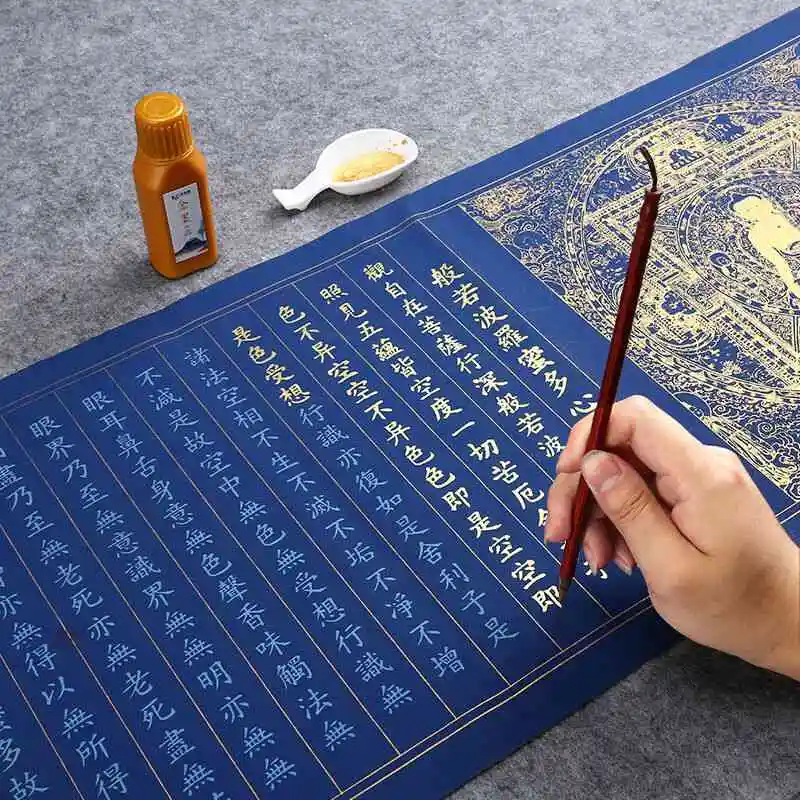 般若波羅蜜多心
觀自在菩薩行深般若波
照見五蘊皆空度一切苦厄
色不异空空不异色色即是空空即
是色受想行識亦復如是舍利子是
諸法空相不生不滅不垢不淨不增
不減是故空中無色無受想行識無
眼耳鼻舌身意無色聲香味觸法無
眼界乃至無意識界無無明亦無
盡乃至無老死亦無老死盡無
亦無得以無所得
多故